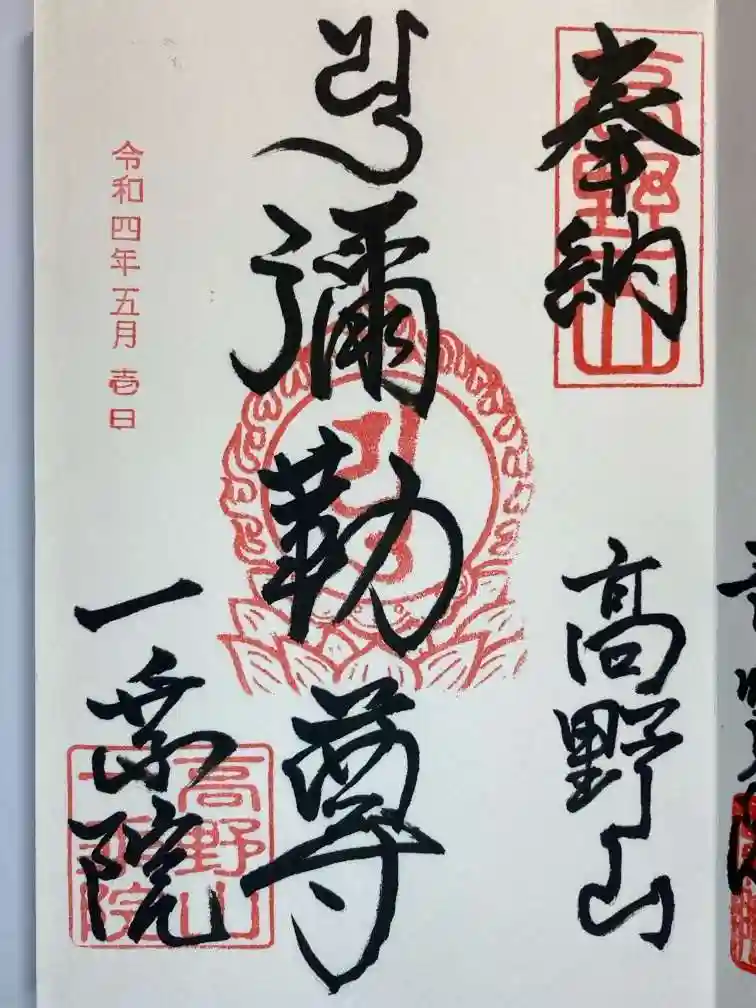 奉納
高野山
高野山
彌勒尊
令和四年五月壱日
一乗院
高野山
一乗院